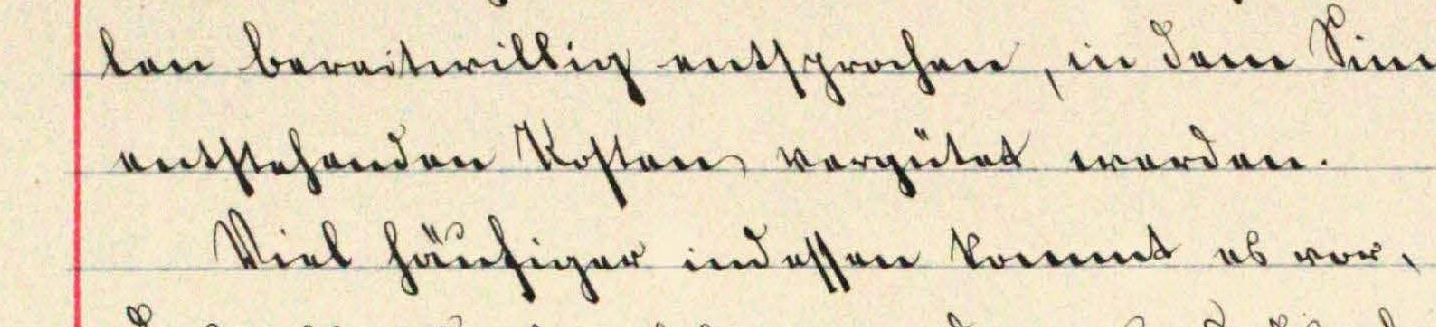 len bereitwillig entsprochen, in dem Sinn
entstehenden Kosten vergütet werden.
Viel häufiger indessen kommt es vor,